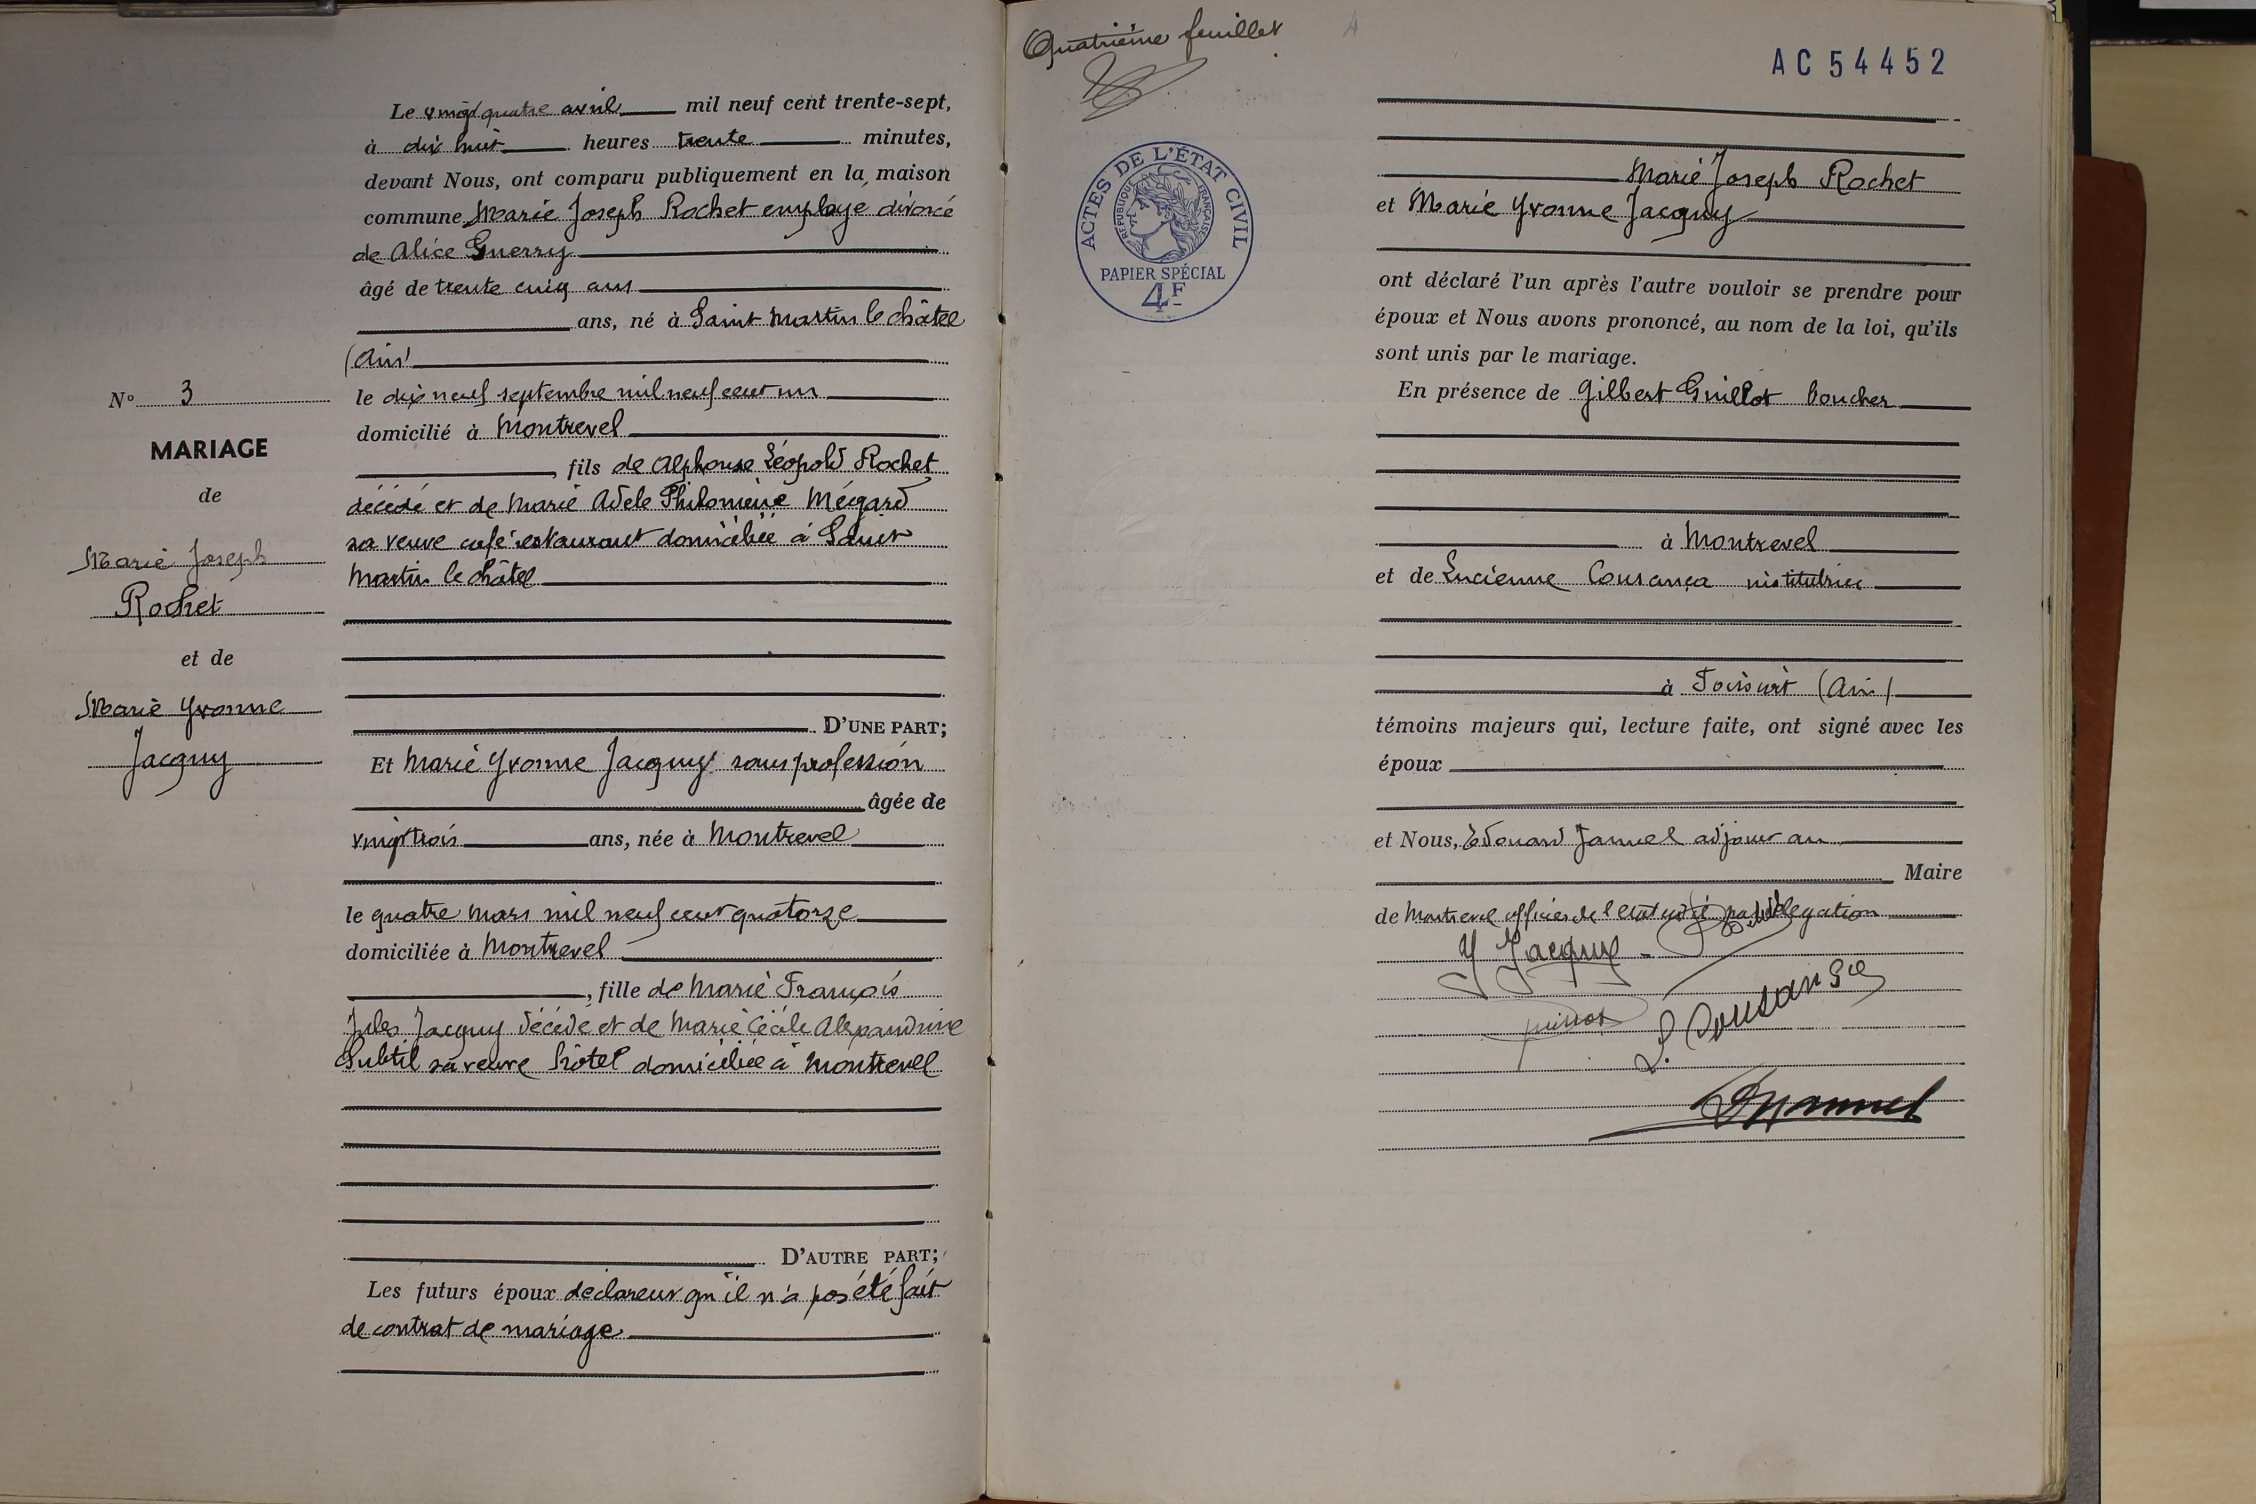 N° 3
MARIAGE
de
Marie Joseph
Rochet
et de
Marie Yvonne
Jacquy
Le vingt quatre avril mil neuf cent trente-sept,
à dix huit heures trente minutes,
devant Nous, ont comparu publiquement en la maison
commune Marie Joseph Rochet employé divorcé
de Alice Guerry
âgé de trente cinq ans
ans, né à Saint Martin le châtel
(Ain)
le dix neuf septembre mil neuf cent un
domicilié à Montrevel
, fils de Alphonse Léopold Rochet
décédé et de Marie Adele Philomène Mégard
sa veuve café restaurant domiciliée à Saint
Martin le châtel
D'UNE PART;
Et Marie Yvonne Jacquy sans profession
âgée de
vingt trois ans, née à Montrevel
le quatre mars mil neuf cent quatorze
domiciliée à Montrevel
, fille de Marie François
Jules Jacquy décédé et de Marie Cécile Alexandrine
Subtil sa veuve hôtel domiciliée à Montrevel
D'AUTRE PART;
Les futurs époux déclarent qu'il n'a pas été fait
de contrat de mariage
Quatrième feuillet
AC 54452
ACTES DE L'ÉTAT CIVIL
RÉPUBLIQUE FRANÇAISE
PAPIER SPÉCIAL
4F
Marie Joseph Rochet
et Marie Yvonne Jacquy
ont déclaré l'un après l'autre vouloir se prendre pour
époux et Nous avons prononcé, au nom de la loi, qu'ils
sont unis par le mariage.
En présence de Gilbert Guillot boucher
à Montrevel
et de Lucienne Cousança institutrice
à (Ain)
témoins majeurs qui, lecture faite, ont signé avec les
époux
et Nous, Edouard Jamel adjoint au
Maire
de Montrevel officier de l'état civil par délégation
Y Jacquy
L. Cousança